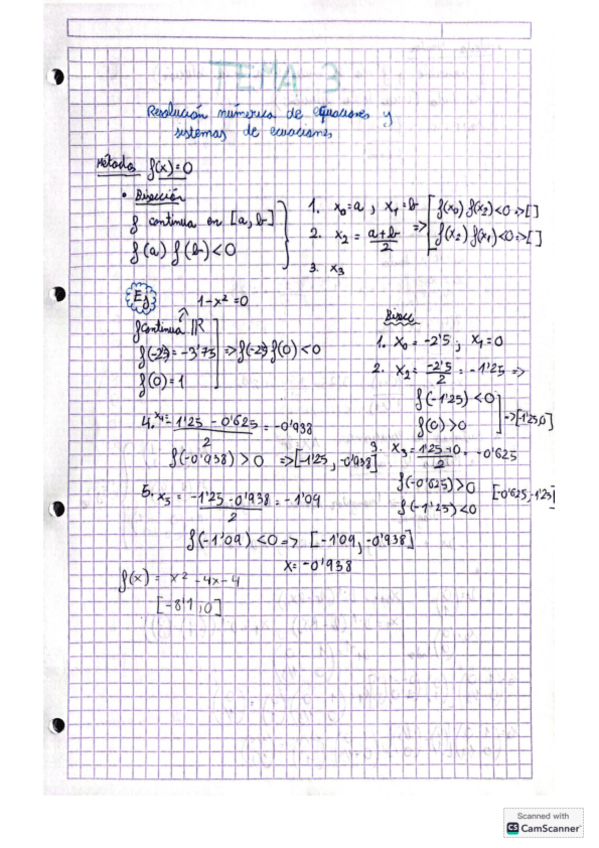 TEMA 3
Resolución numérica de ecuaciones y
sistemas de ecuaciones
Métodos f(x)=0
• Bisección
f continua en [a, b]
f(a) f(b)<0
1. x₀=a , x₁=b
2. x₂ = a+b/2 => f(x₀) f(x₂)<0 =>[ ]
f(x₂) f(x₁)<0 =>[ ]
3. x₃
Ej
1-x²=0
f continua ℝ
f(-2'5)=-3'75 => f(-2'5) f(0) <0
f(0)=1
Bisec
1. x₀ = -2'5 ; x₁=0
2. x₂ = -2'5/2 = -1'25 =>
f(-1'25) <0
f(0) >0 =>[-1'25,0]
3. x₃ = 1'25+0/2 = -0'625
f(-0'625)>0
f(-1'25)<0 [-0'625,-1'25]
4. x₄= -1'25 -0'625/2 = -0'938
f(-0'938) >0 =>[-1'25, -0'938]
5. x₅ = -1'25-0'938/2 = -1'09
f(-1'09) <0 => [-1'09, -0'938]
x= -0'938
f(x) = x² -4x-4
[-8'1,0]
Scanned with
CS CamScanner